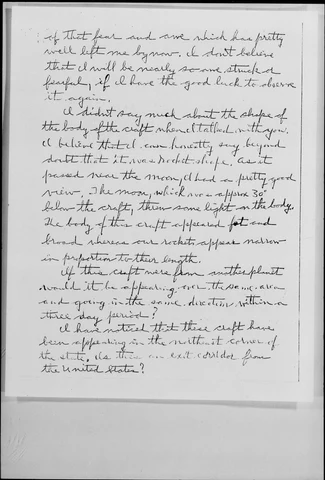 of that fear and awe which has pretty
well left me by now. I don't believe
that I will be nearly so awe struck &
fearful, if I have the good luck to observe
it again.
I didn't say much about the shape of
the body of the craft when I talked with you.
I believe that I can honestly say beyond
doubt that it was rocket shape. As it
passed near the moon, I had a pretty good
view. The moon, which was approx 30°
below the craft, threw some light on the body.
The body of this craft appeared fat and
broad whereas our rockets appear narrow
in proportion to their length.
If this craft were from another planet
would it be appearing over the same area
and going in the same direction within a
three day period?
I have noticed that these craft have
been appearing in the northeast corner of
the state. Is this an exit corridor from
the United States?